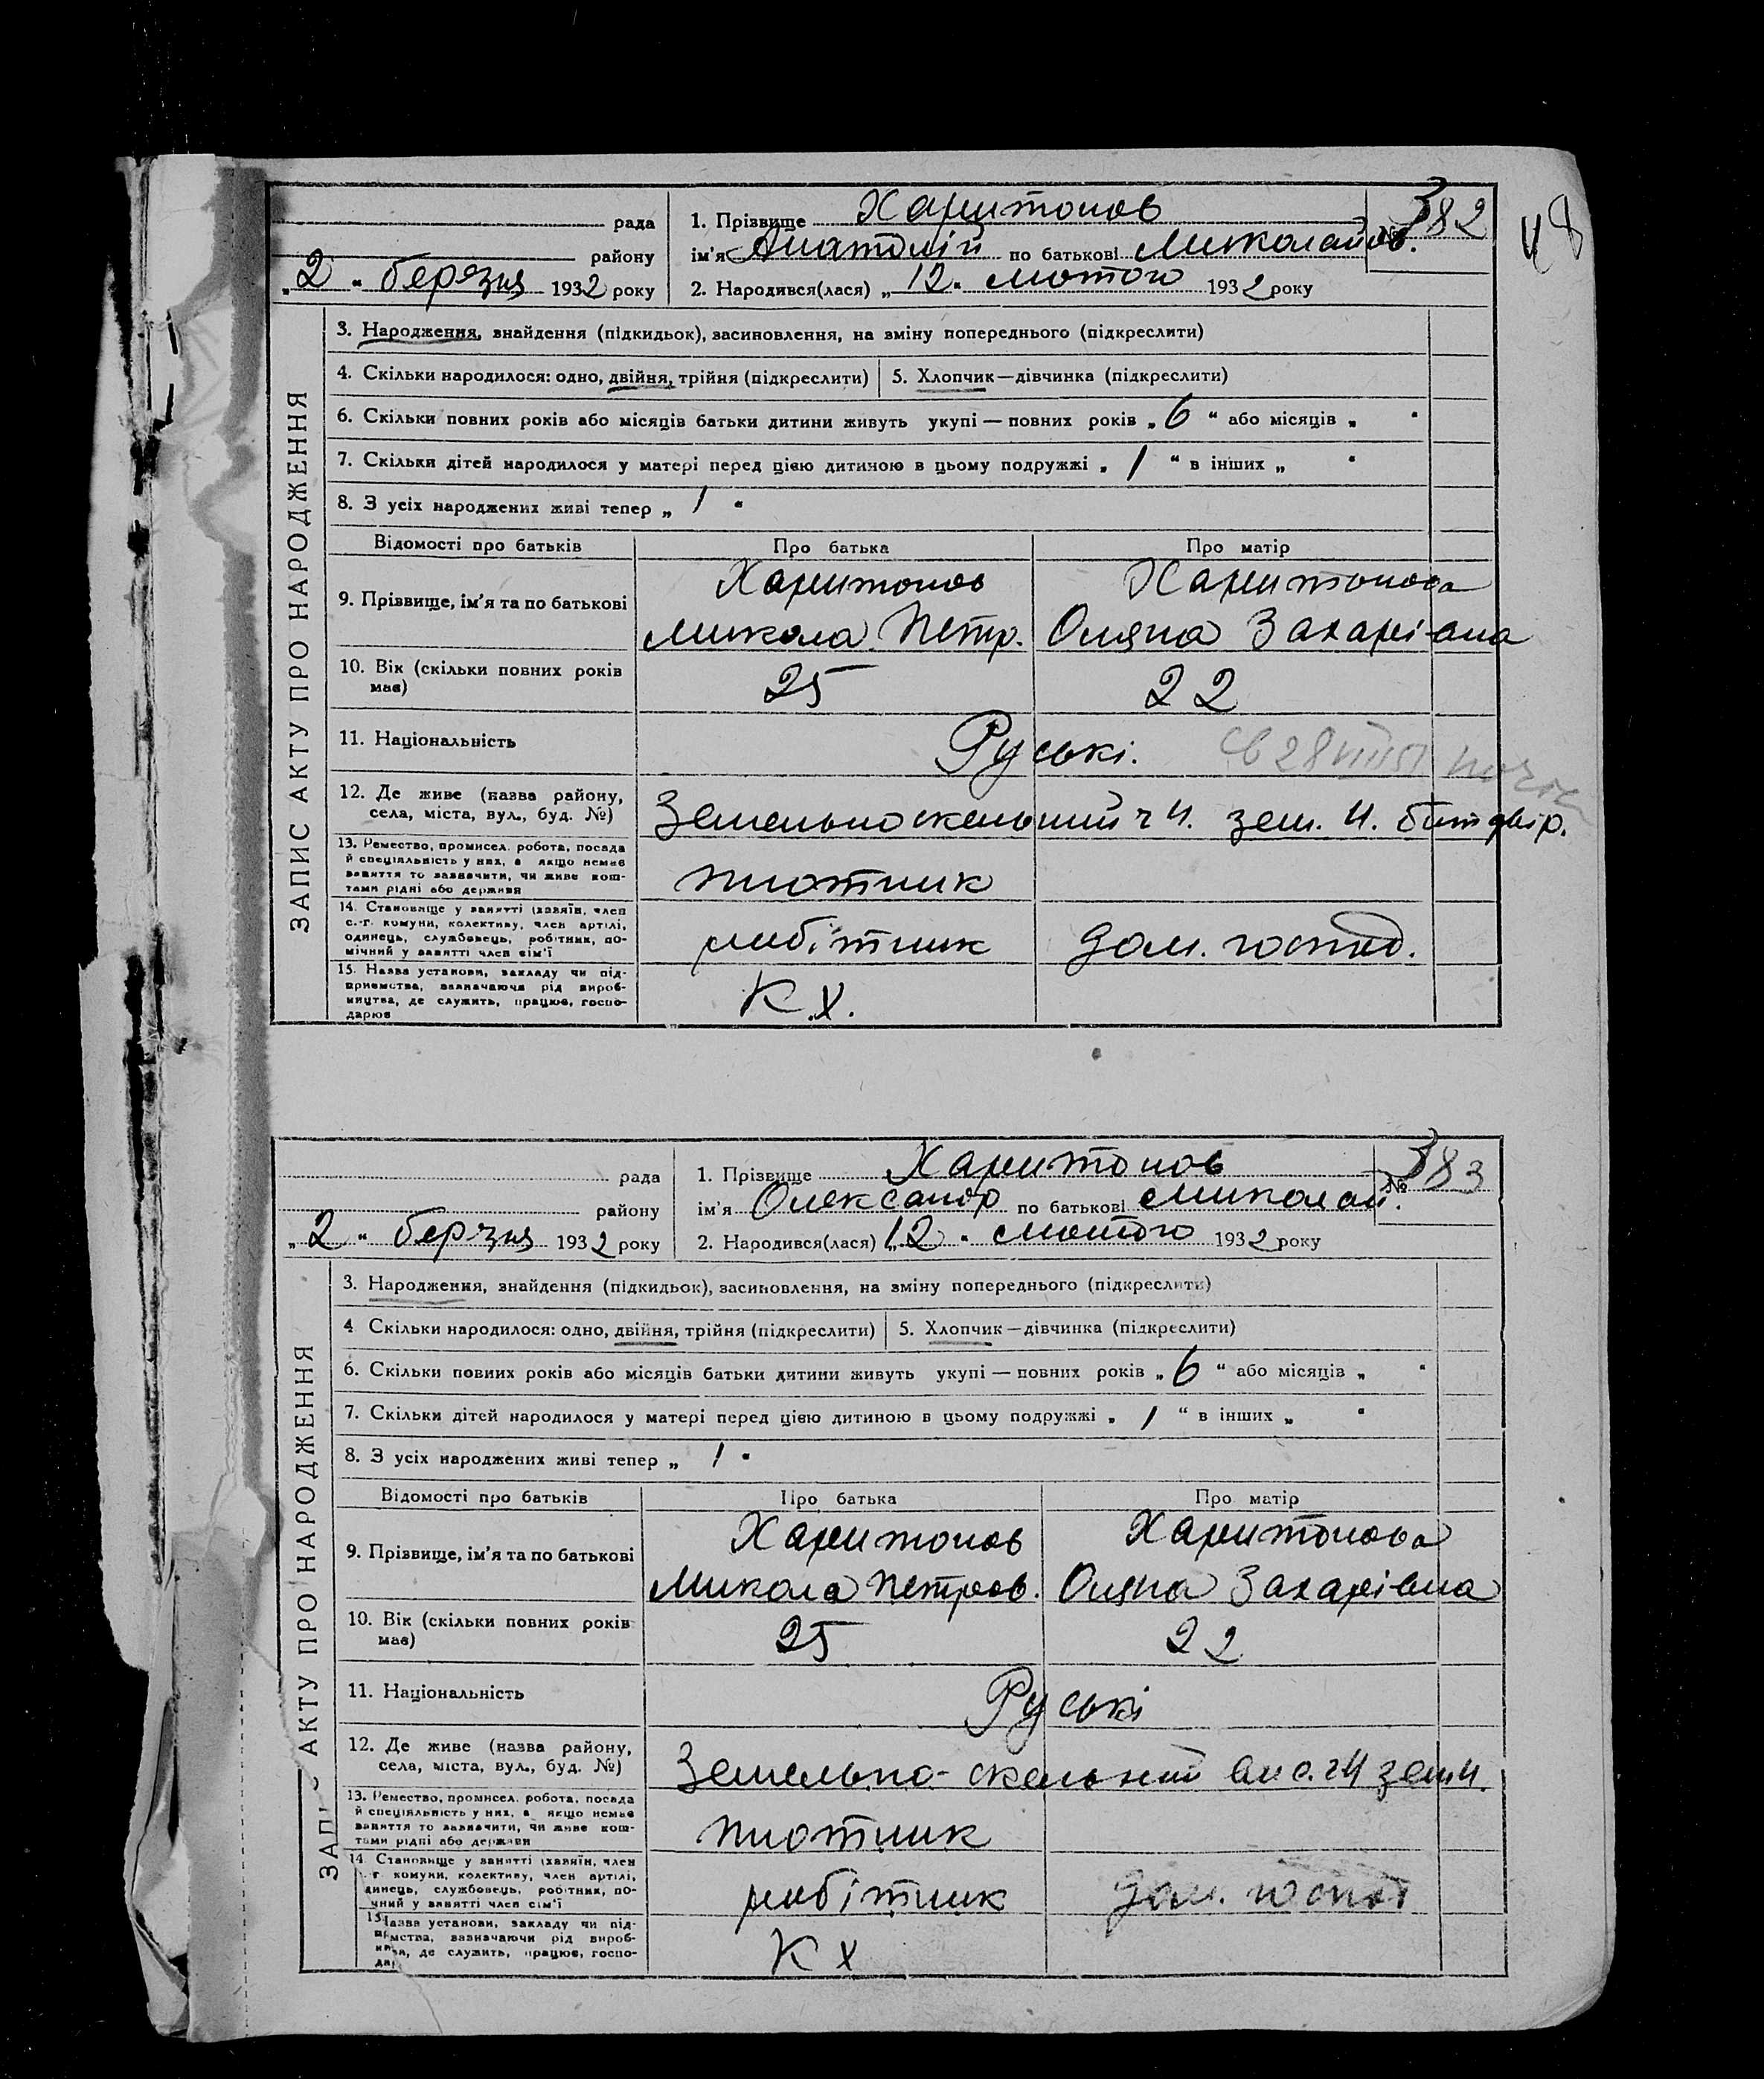 рада
району
„2“ березня 1932 року
1. Прізвище Харитонов
№ 382
ім’я Анатолій по батькові Миколайов.
2. Народився(лася) „12“ лютого 1932 року
48
ЗАПИС АКТУ ПРО НАРОДЖЕННЯ
3. Народження, знайдення (підкидьок), засиновлення, на зміну попереднього (підкреслити)
4. Скільки народилося: одно, двійня, трійня (підкреслити) 5. Хлопчик—дівчинка (підкреслити)
6. Скільки повних років або місяців батьки дитини живуть укупі — повних років „6“ або місяців „ “
7. Скільки дітей народилося у матері перед цією дитиною в цьому подружжі „1“ в інших „ “
8. З усіх народжених живі тепер „1“
Відомості про батьків Про батька Про матір
9. Прізвище, ім’я та по батькові
Харитонов Харитонова
Микола Петр. Оляна Захарівна
10. Вік (скільки повних років
має)
25 22
11. Національність Руські.
12. Де живе (назва району,
села, міста, вул., буд. №)
Земельноскельний 24.
13. Ремество, промисел. робота, посада
й спеціяльність у них, а якщо немає
заняття то зазначити, чи живе кош-
тами рідні або держави
плотник
14. Становище у занятті (хазяїн, член
с.-г. комуни, колективу, член артілі,
одинець, службовець, робітник, по-
мічний у занятті член сім’ї
робітник дом. господ.
15. Назва установи, закладу чи під-
приємства, зазначаючи рід вироб-
ництва, де служить, працює, госпо-
дарює
К.Х.
рада
району
„2“ березня 1932 року
1. Прізвище Харитонов
№ 383
ім’я Олександр по батькові Миколай.
2. Народився(лася) „12“ лютого 1932 року
ЗАП АКТУ ПРО НАРОДЖЕННЯ
3. Народження, знайдення (підкидьок), засиновлення, на зміну попереднього (підкреслити)
4 Скільки народилося: одно, двійня, трійня (підкреслити) 5. Хлопчик—дівчинка (підкреслити)
6. Скільки повних років або місяців батьки дитини живуть укупі — повних років „6“ або місяців „ “
7. Скільки дітей народилося у матері перед цією дитиною в цьому подружжі „1“ в інших „ “
8. З усіх народжених живі тепер „1“
Відомості про батьків Про батька Про матір
9. Прізвище, ім’я та по батькові
Харитонов Харитонова
Микола Петров. Оляна Захарівна
10. Вік (скільки повних років
має)
25 22
11. Національність Руські
12. Де живе (назва району,
села, міста, вул., буд. №)
Земельно-скельний
13. Ремество, промисел. робота, посада
й спеціяльність у них, а якщо немає
заняття то зазначити, чи живе кош-
тами рідні або держави
плотник
14. Становище у занятті (хазяїн, член
г комуни, колективу, член артілі,
динець, службовець, робітник, по-
чний у занятті член сім’ї
робітник дом. господ
15 Назва установи, закладу чи під-
мства, зазначаючи рід вироб-
ва, де служить, працює, госпо-
да
К Х